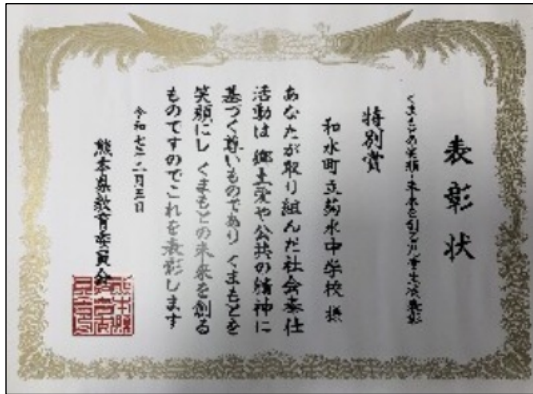 表彰状
くまもとの笑顔・未来を創る児童生徒表彰
特別賞
和水町立菊水中学校 様
あなたが取り組んだ社会奉仕
活動は 郷土愛や公共の精神に
基づく尊いものであり くまもとを
笑顔にし くまもとの未来を創る
ものですのでこれを表彰します
令和七年二月三日
熊本県教育委員会